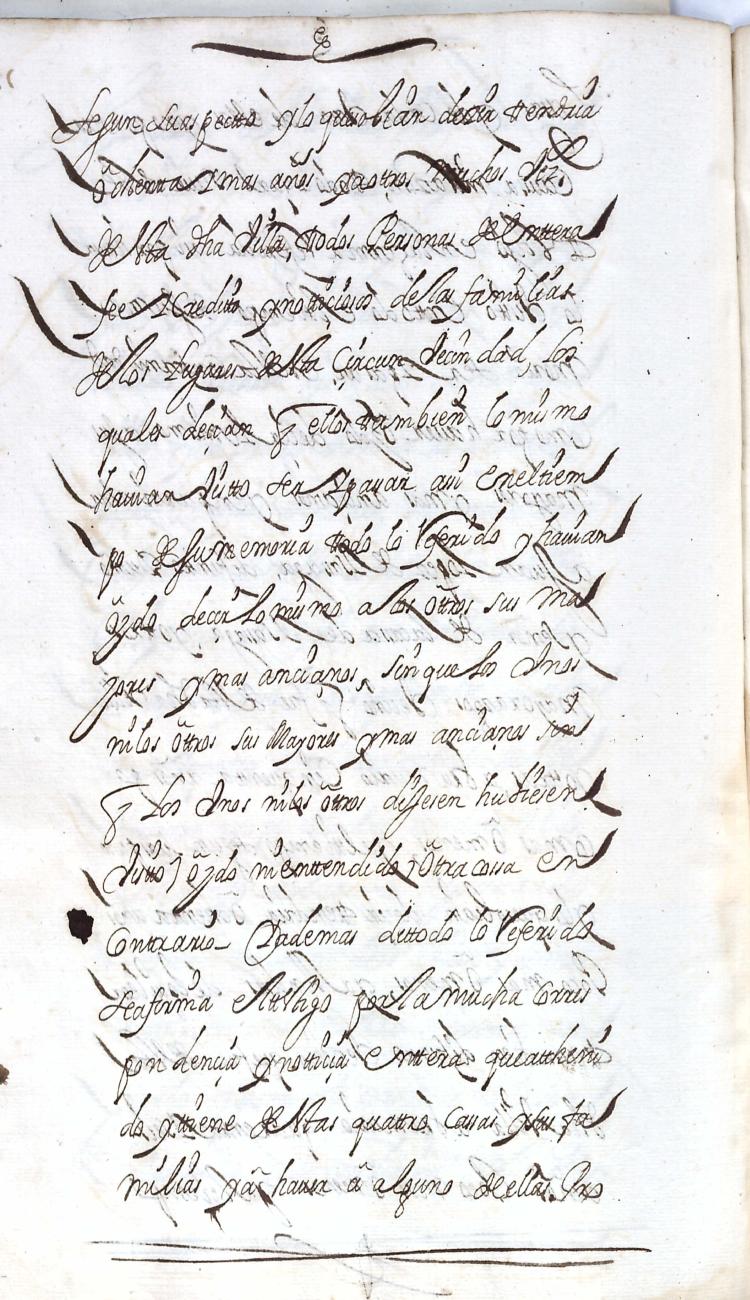 Segun su aspectto y lo que oblan decir ttendria
ôchenta Y mas años y a ottros muchos Vez.
de estta dha Villa, ttodos Personas de enttera
fee Y Creditto y notticiosos de las familias
de los Lugares de estta Circumvecindad, los
quales decian q̃ ellos ttambien lo mismo
havian Vistto ser Y pasar assi en el tiem
po de su memoria ttodo lo Referido y havian
ôydo decir lo mismo a los ôttros sus ma
yores y mas ancianos, sin que los Unos
ni los ôttros sus Mayores y mas ancianos sin
q̃ los Unos ni los ôttros dijesen hubiesen
Vistto, ôydo ni enttendido, ôttra cossa en
Conttrario Y ademas de ttodo lo Referido
se afirma el ttestigo por la mucha corres
pondencia y notticia enttera que a ttheni
do y ttiene de esttas quattro cassas y sus fa
milias y a haver â alguno de ellas. Pro